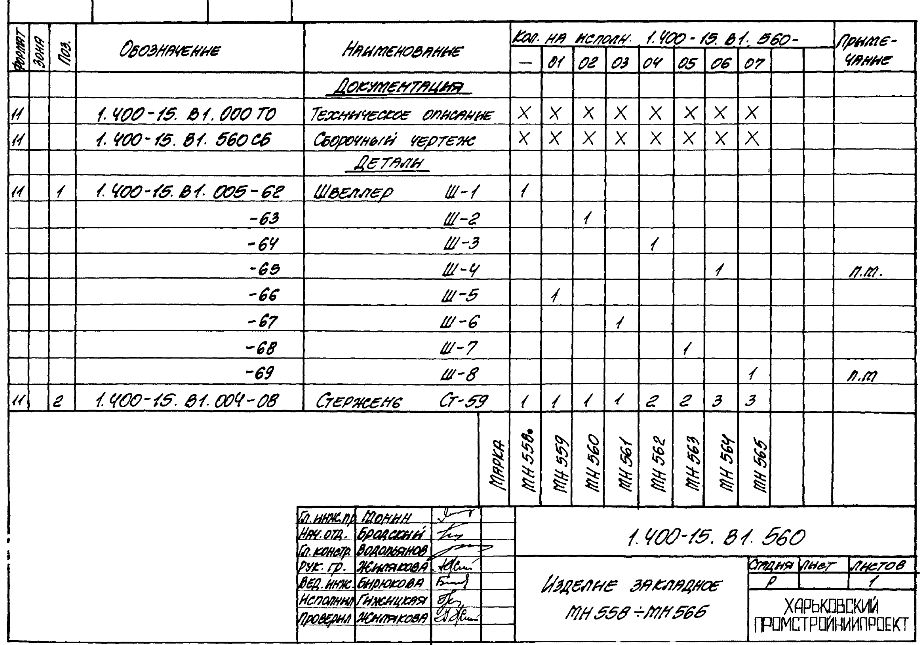 ФОРМАТ ЗОНА ПОЗ. ОБОЗНАЧЕНИЕ НАИМЕНОВАНИЕ КОЛ. НА ИСПОЛН. 1.400-15.В1.560- ПРИМЕЧАНИЕ
— 01 02 03 04 05 06 07
ДОКУМЕНТАЦИЯ
11 1.400-15.В1.000 ТО ТЕХНИЧЕСКОЕ ОПИСАНИЕ X X X X X X X X
11 1.400-15.В1.560 СБ СБОРОЧНЫЙ ЧЕРТЕЖ X X X X X X X X
ДЕТАЛИ
11 1 1.400-15.В1.005-62 ШВЕЛЛЕР Ш-1 1
-63 Ш-2 1
-64 Ш-3 1
-65 Ш-4 1 п.м.
-66 Ш-5 1
-67 Ш-6 1
-68 Ш-7 1
-69 Ш-8 1 п.м
11 2 1.400-15.В1.004-08 СТЕРЖЕНЬ СТ-59 1 1 1 1 2 2 3 3
МАРКА МН 558 МН 559 МН 560 МН 561 МН 562 МН 563 МН 564 МН 565
ГЛ. ИНЖ. ПР. МОНИН
НАЧ. ОТД. БРОДСКИЙ
ГЛ. КОНСТР. ВОДОЛЬЯНОВ
РУК. ГР. ЖИЛЯКОВА
ВЕД. ИНЖ. БИРЮКОВА
ИСПОЛНИЛ ГИЖИЦКАЯ
ПРОВЕРИЛ ЖИЛЯКОВА
1.400-15.В1.560
ИЗДЕЛИЕ ЗАКЛАДНОЕ
МН 558÷МН 566
СТАДИЯ ЛИСТ ЛИСТОВ
Р 1
ХАРЬКОВСКИЙ
ПРОМСТРОЙНИИПРОЕКТ